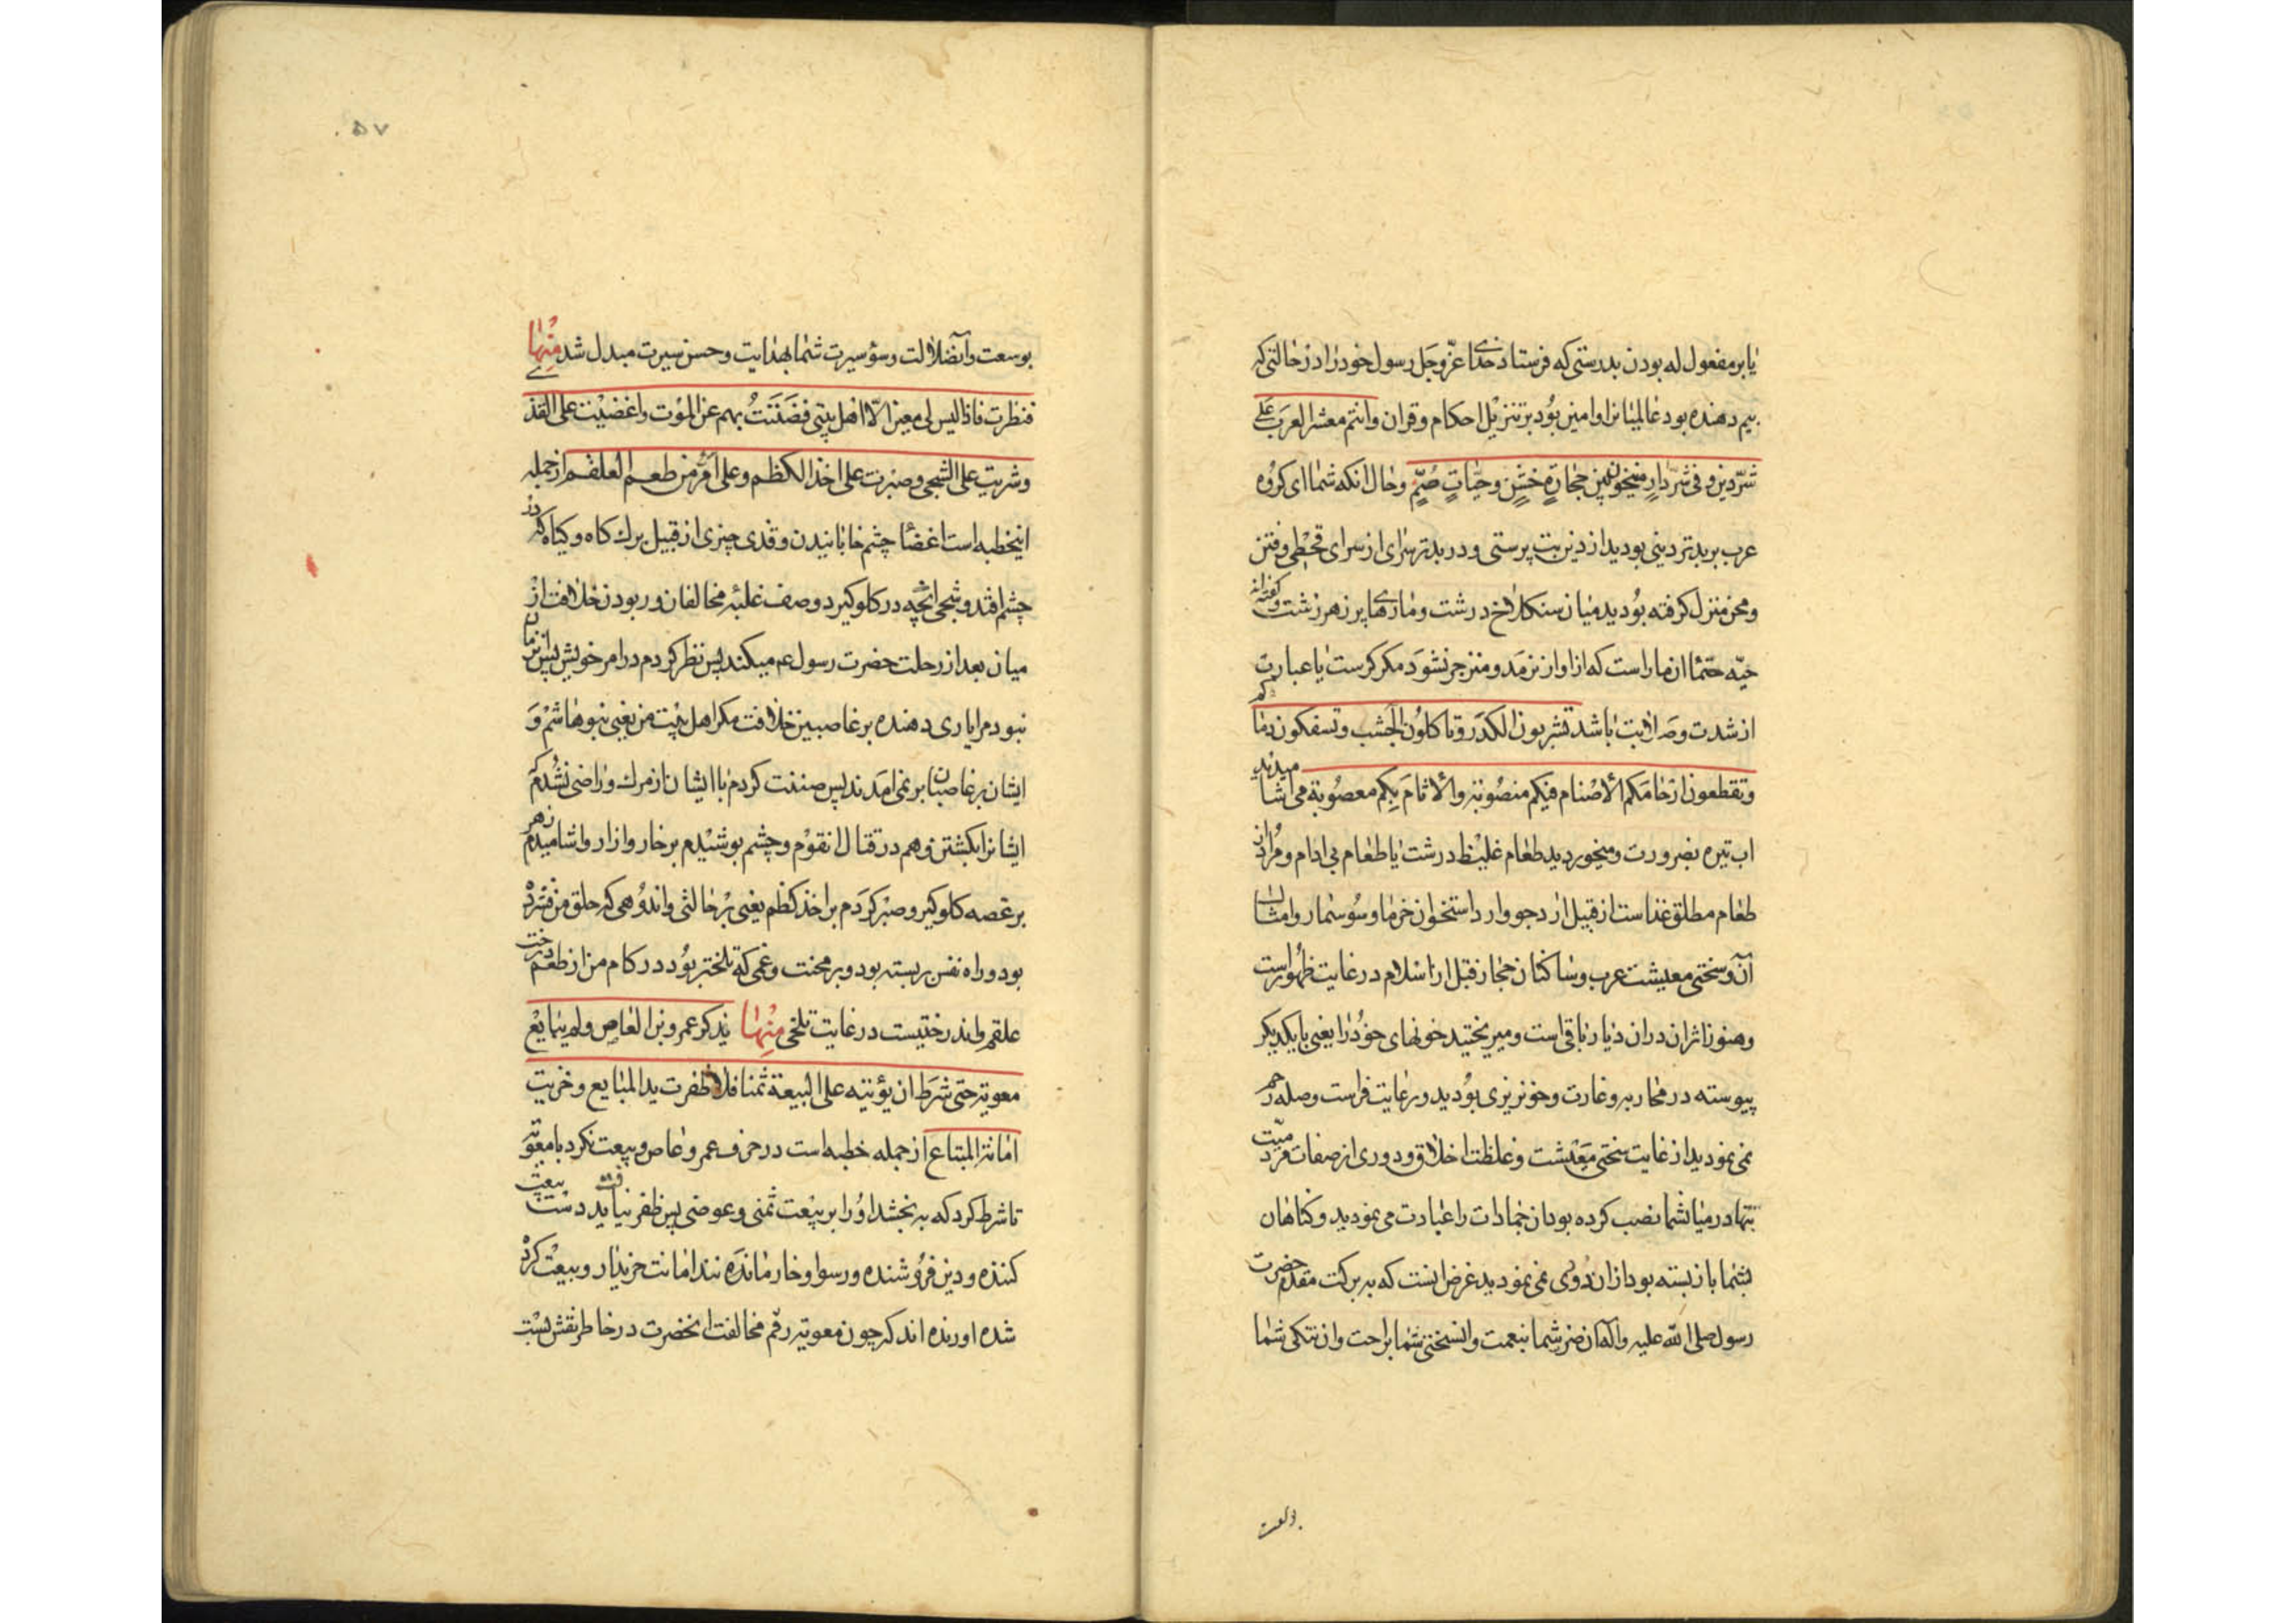 یا بر مفعول له بودن بدرستی که فرستاد خدای عزّوجل رسول خود را در حالتی که
بیم دهنده بود عالمیانرا و امین بود بر تنزیل احکام و قران وانتم معشر العرب علی
شرّ دین و فی شرّ دار منیخون بین حجارة خشن و حیّات صُمٍّ و حال انکه شما ای کروه
عرب بر بدتر دینی بودید از دین بت پرستی و در بدتر سرای از سرای قحطی و فتن
و محن منزل کرفته بودید میان سنکلاخ درشت و مارهای پر زهر زشت و کفته‌اند
حیّه صمّا ان مار است که از اواز نرمد و منزجر نشود مکر کرست یا عبارت
از شدت و صلابت باشد تشربون الکدر و تاکلون الجشب و تسفکون دماکم
و تقطعون ارحامکم الأصنام فیکم منصوبة والآثام بکم معصوبة می اشامیدید
اب تیره بضرورت و میخوردید طعام غلیظ درشت یا طعام بی ادام و مراد از
طعام مطلق غذاست از قبیل ارد جو وارد استخوان خرما و سوسمار و امثال
آن و سختی معیشت عرب و ساکنان حجاز قبل از اسلام در غایت ظهور است
وهنوز اثر ان دران دیار باقی است و میریختید خونهای خود را یعنی با یکدیکر
پیوسته در محاربه و غارت و خونریزی بودید و رعایت قرابت و صله رحم
نمی نمودید از غایت سختی معیشت و غلظت اخلاق و دوری از صفات مردمیّت
بتها در میان شما نصب کرده بود ان جمادات را عبادت می نمودید و کناهان
بشما باز بسته بود از ان دوری نمی نمودید غرض اینست که به برکت مقدم حضرت
رسول صلی الله علیه واله ان ضر شما بنعمت و ان سختی شما براحت وان تنکی شما
بوسعت و ان ضلالت و سوء سیرت شما بهدایت و حسن سیرت مبدل شد منها
فنظرت فاذا لیس لی معین الّا اهل بیتی فضننت بهم عن الموت واغضیت علی القذی
و شربت علی الشجی و صبرت علی اخذ الکظم و علی امرّ من طعم العلقم از جمله
اینخطبه است اغضا چشم خابانیدن و قذی چیزی از قبیل برك کاه و کیاه که در
چشم افتد و شجی انچه در کلو کیرد وصف غلبه مخالفان و ربودن خلافت از
میان بعد از رحلت حضرت رسول عم میکند پس نظر کردم در امر خویش پس درین زمان
نبود مرا یاری دهنده بر غاصبین خلافت مکر اهل بیت من یعنی بنو هاشم و
ایشان بر غاصبان بر نمی امدند پس ضننت کردم با ایشان از مرك و راضی نشدم که
ایشانرا بکشتن دهم در قتال انقوم و چشم پوشیدم بر خار و ازار واشامیدم زهر
بر غصه کلو کیر و صبر کردم بر اخذ کظم یعنی بر حالتی واندوهی که حلق من فشرده
بود و راه نفس بر بسته بود و بر محنت و غمی که تلختر بود در کام من از طعم درخت
علقم و اندرختیست در غایت تلخی منها یذکر عمرو بن العاص و لم یبایع
معویة حتی شرط ان یؤتیه علی البیعة ثمنا فلا ظفرت ید المبایع و خزیت
امانة المبتاع از جمله خطبه است در حرف عمرو عاص و بیعت نکرد با معویه
تا شرط کرد که به بخشد او را بر بیعت ثمنی و عوضی پس ظفر نیابد دست بیعت
کننده و دین فروشنده و رسوا و خار مانده شد امانت خریدار و بیعت کرده
شده اورده اند که چون معویه رقم مخالفت انحضرت در خاطر نقش بست